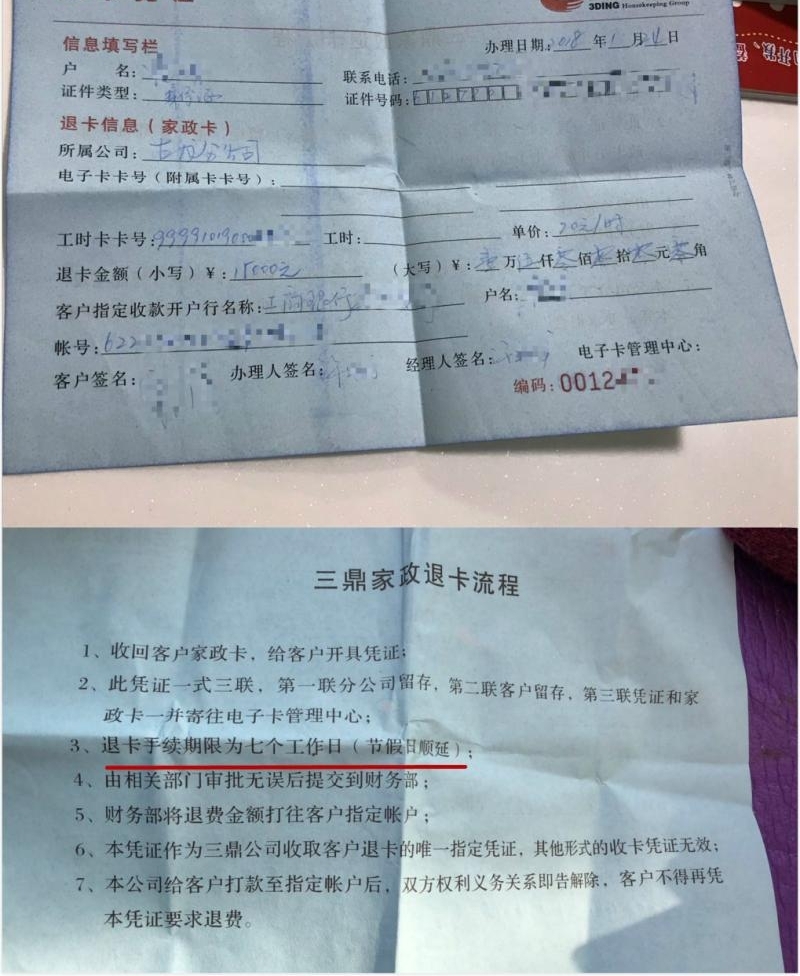 3DING Housekeeping Group
信息填写栏
办理日期:2018年1月24日
户 名:
联系电话:
证件类型:身份证
证件号码:
退卡信息(家政卡)
所属公司:
电子卡卡号(附属卡卡号):
工时卡卡号:9999101900
工时:
单价:20元/时
退卡金额(小写)¥:15000元
(大写)¥:壹万伍仟零佰零拾零元零角
客户指定收款开户行名称:工商银行
户名:
帐号:622
客户签名:
办理人签名:
经理人签名:
电子卡管理中心:
编码:0012
三鼎家政退卡流程
1、收回客户家政卡,给客户开具凭证;
2、此凭证一式三联,第一联分公司留存,第二联客户留存,第三联凭证和家
政卡一并寄往电子卡管理中心;
3、退卡手续期限为七个工作日(节假日顺延);
4、由相关部门审批无误后提交到财务部;
5、财务部将退费金额打往客户指定帐户;
6、本凭证作为三鼎公司收取客户退卡的唯一指定凭证,其他形式的收卡凭证无效;
7、本公司给客户打款至指定帐户后,双方权利义务关系即告解除,客户不得再凭
本凭证要求退费。